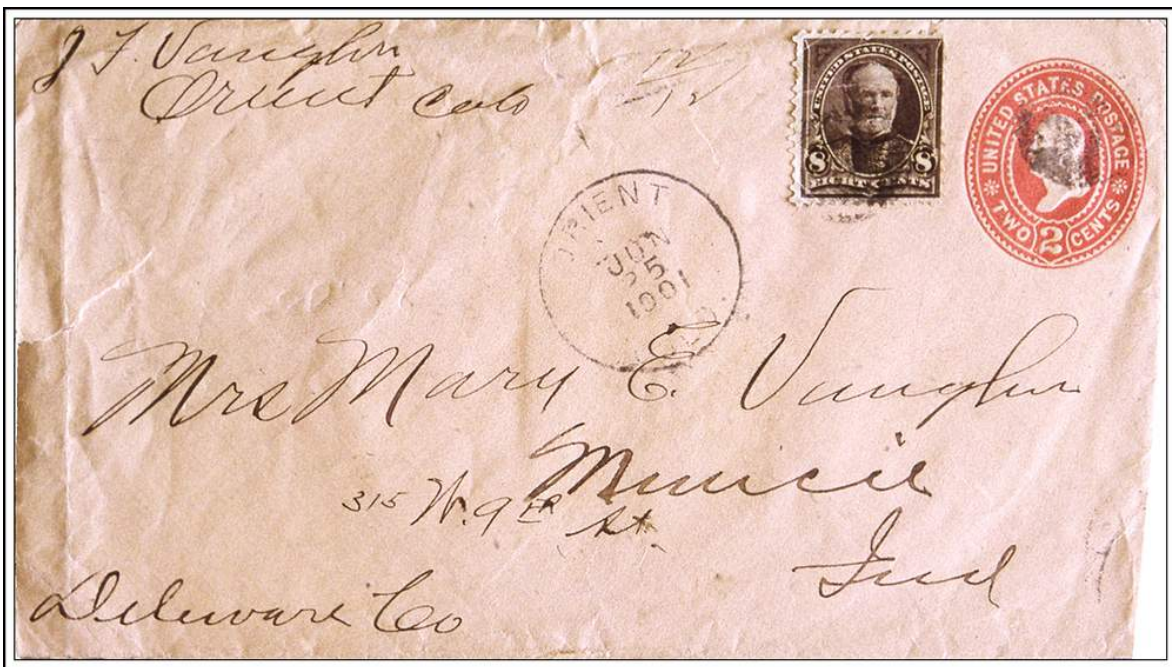 J F. Vaughn
Orient Colo
12
UNITED STATES POSTAGE
8 8
EIGHT CENTS
UNITED STATES POSTAGE
TWO 2 CENTS
ORIENT
JUN
25
1901
Mrs Mary E. Vaughn
Muncie
315 W. 9th St.
Ind
Deleware Co